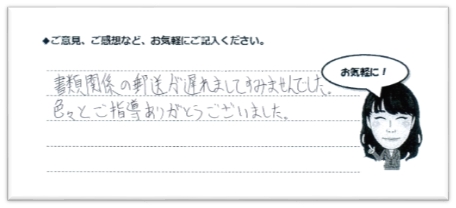 ◆ご意見、ご感想など、お気軽にご記入ください。
お気軽に！
書類関係の郵送が遅れましてすみませんでした。
色々とご指導ありがとうございました。